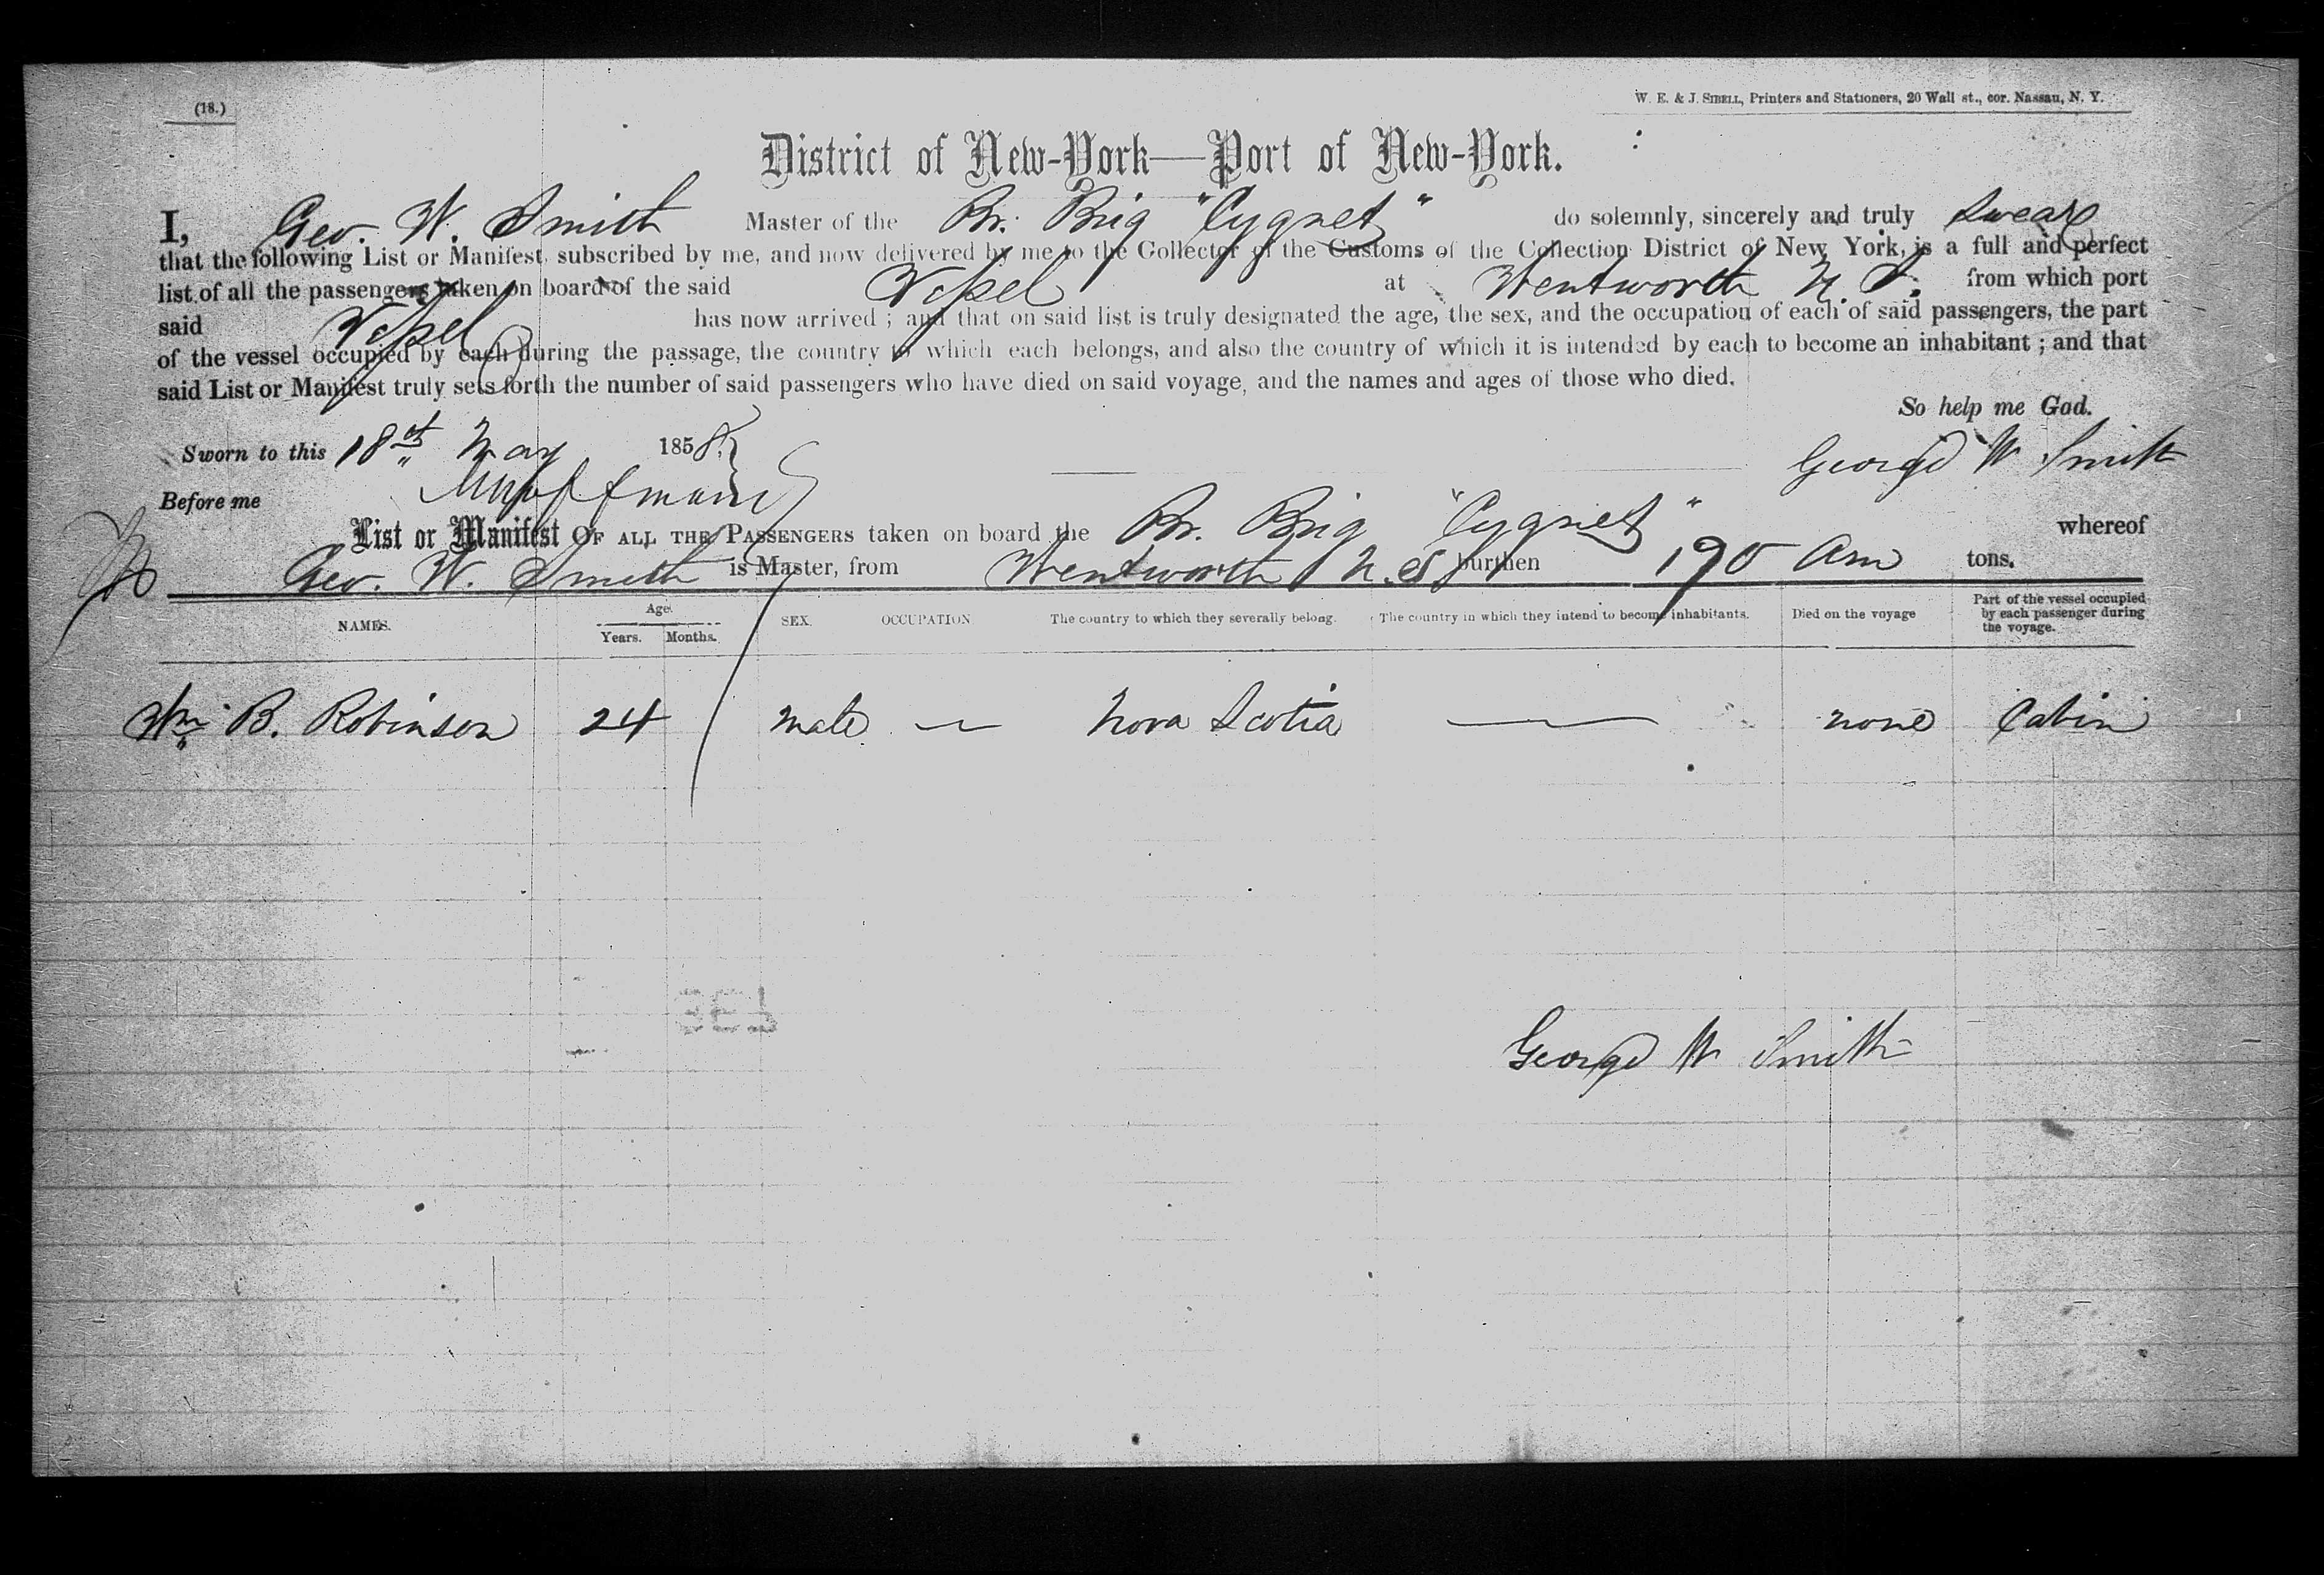 (18.)
W. E. & J. SIBELL, Printers and Stationers, 20 Wall st., cor. Nassau, N. Y.
District of New-York—Port of New-York.
I, Geo. W. Smith Master of the Br. Brig "Cygnet" do solemnly, sincerely and truly Swear
that the following List or Manifest, subscribed by me, and now delivered by me to the Collector of the Customs of the Collection District of New York, is a full and perfect
list of all the passengers taken on board of the said Vessel at Wentworth N. S. from which port
said Vessel has now arrived ; and that on said list is truly designated the age, the sex, and the occupation of each of said passengers, the part
of the vessel occupied by each during the passage, the country to which each belongs, and also the country of which it is intended by each to become an inhabitant ; and that
said List or Manifest truly sets forth the number of said passengers who have died on said voyage, and the names and ages of those who died.
So help me God.
Sworn to this 18th May 1858. George W Smith
Before me
List or Manifest OF ALL THE PASSENGERS taken on board the Br. Brig "Cygnet" whereof
Geo. W. Smith is Master, from Wentworth N. S. burthen 190 Am tons.
NAMES. Age. Years. Months. SEX. OCCUPATION The country to which they severally belong. The country in which they intend to become inhabitants. Died on the voyage Part of the vessel occupied by each passenger during the voyage.
Wm B. Robinson 24 male — Nova Scotia — none Cabin
George W Smith